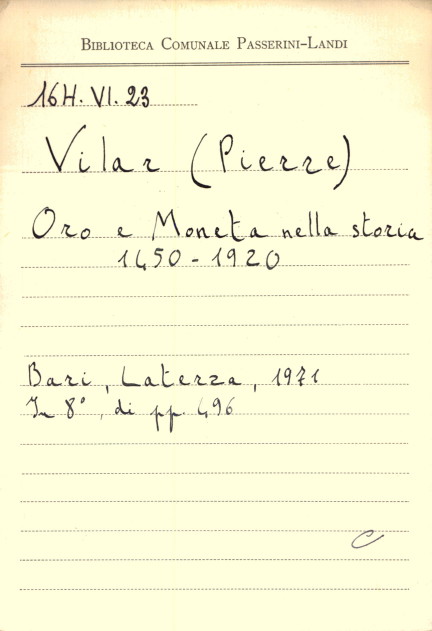 BIBLIOTECA COMUNALE PASSERINI-LANDI
16H. VI. 23
Vilar (Pierre)
Oro e Moneta nella storia
1450-1920
Bari, Laterza, 1971
In 8°, di pp. 496
C